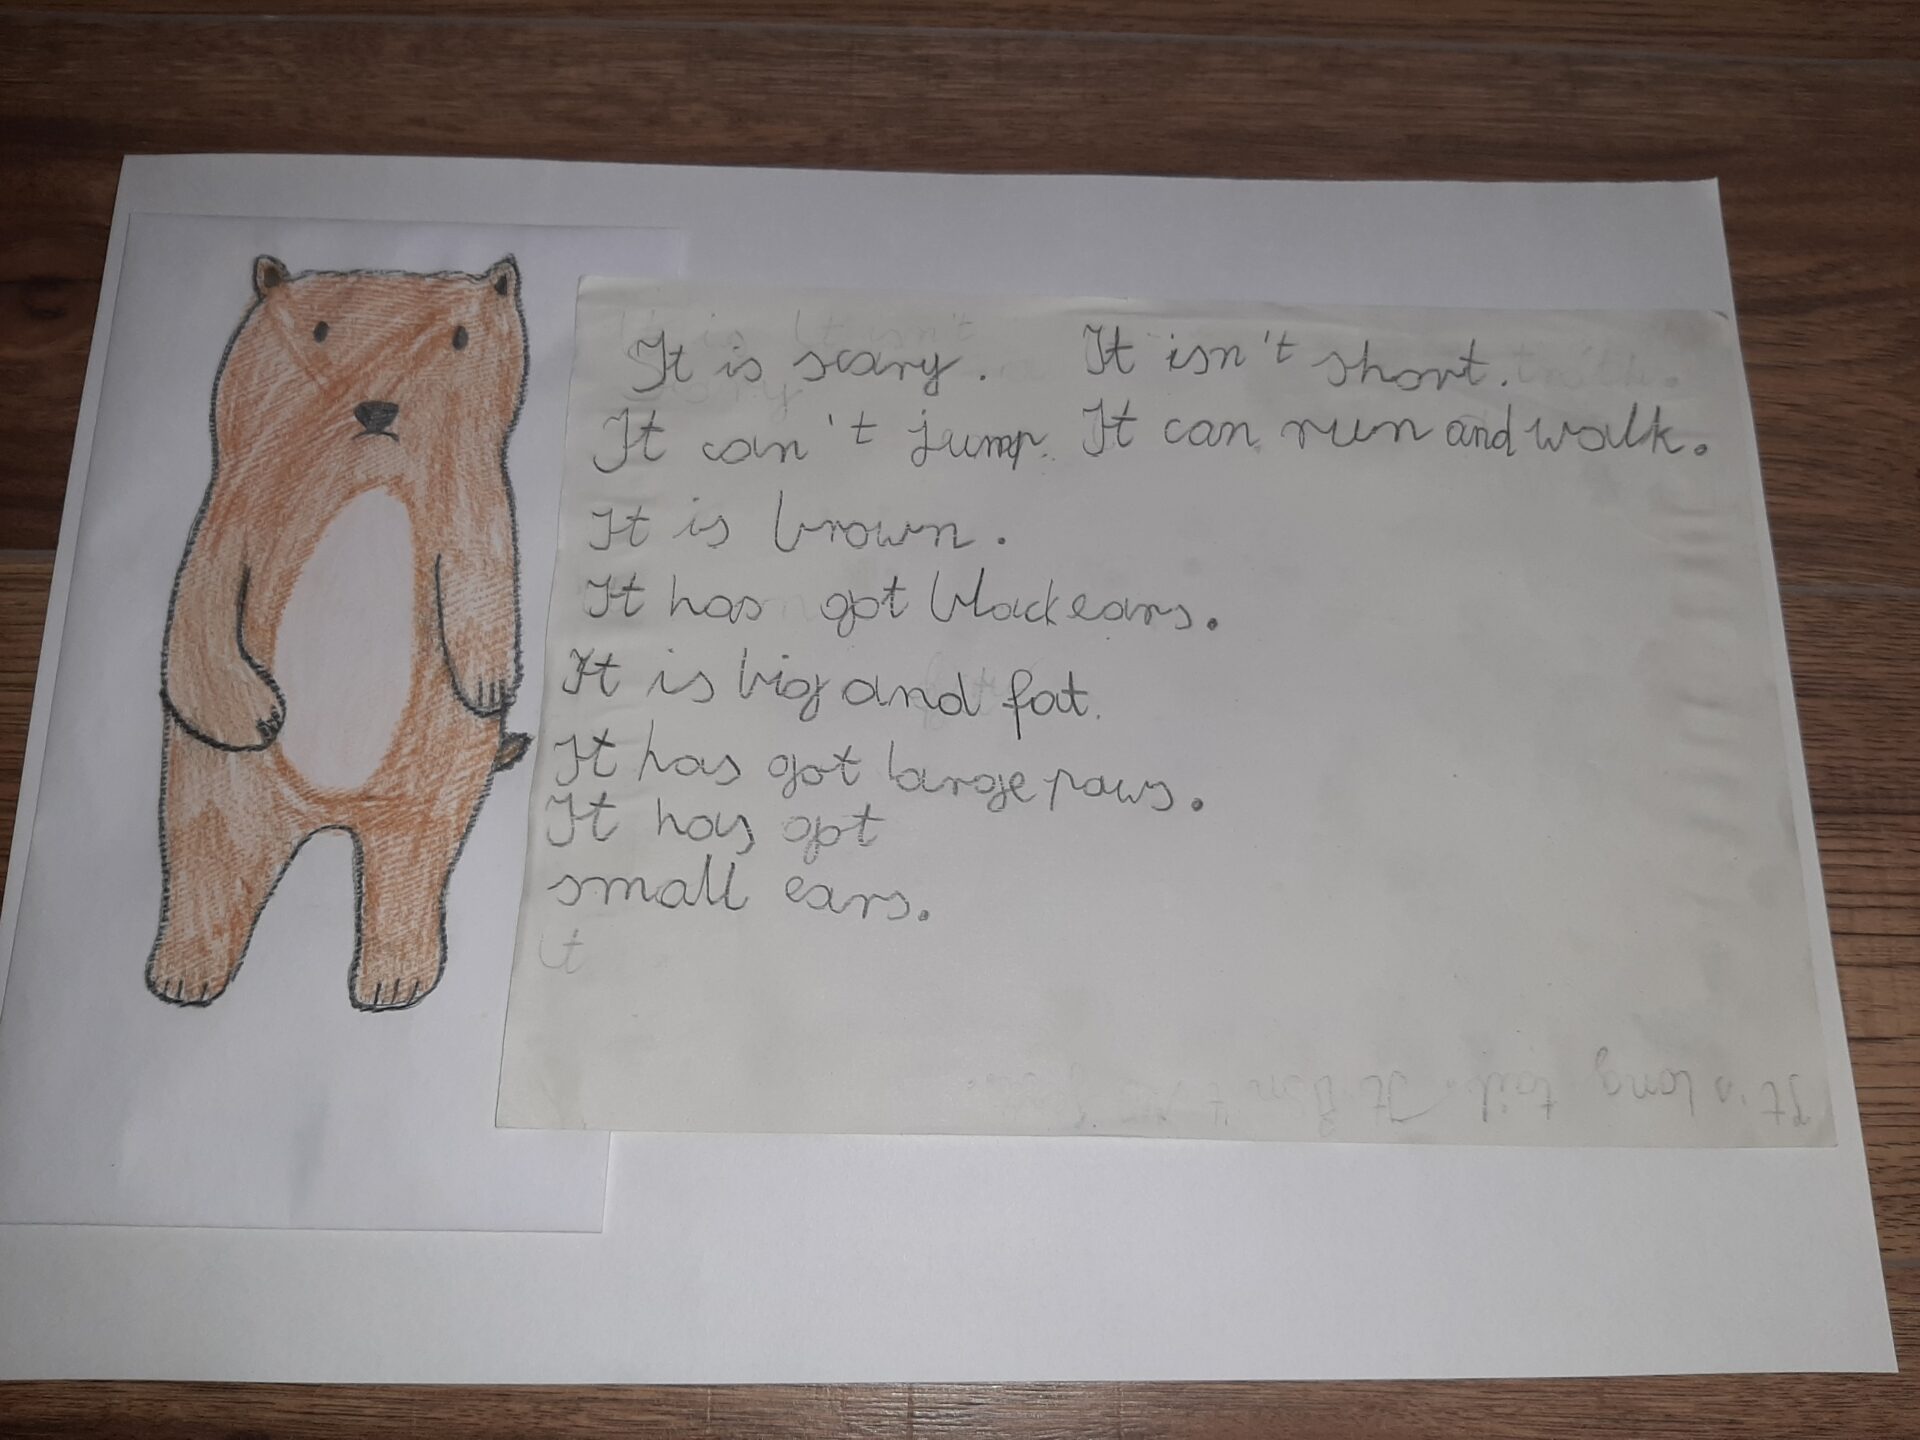 It is scary. It isn't short.
It can't jump. It can run and walk.
It is brown.
It has got black ears.
It is big and fat.
It has got large paws.
It has got
small ears.
It
It's long tail. It